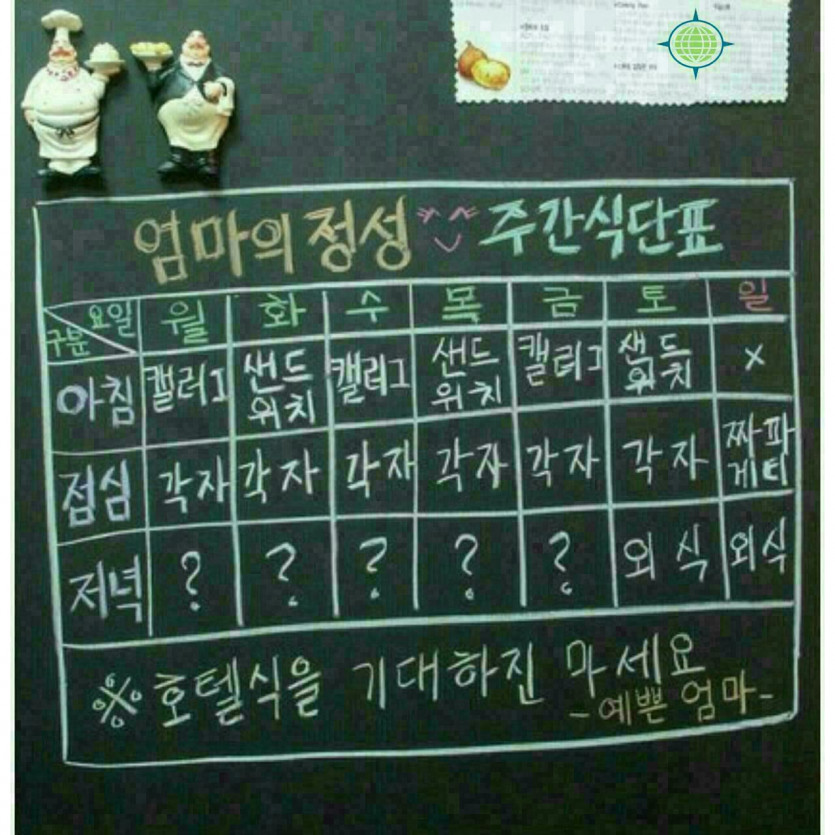 엄마의 정성 ^^ 주간식단표
요일 구분 월 화 수 목 금 토 일
아침 캘러그 샌드위치 캘러그 샌드위치 캘러그 샌드위치 x
점심 각자 각자 각자 각자 각자 각자 짜파게티
저녁 ? ? ? ? ? 외식 외식
※ 호텔식을 기대하진 마세요
-예쁜 엄마-